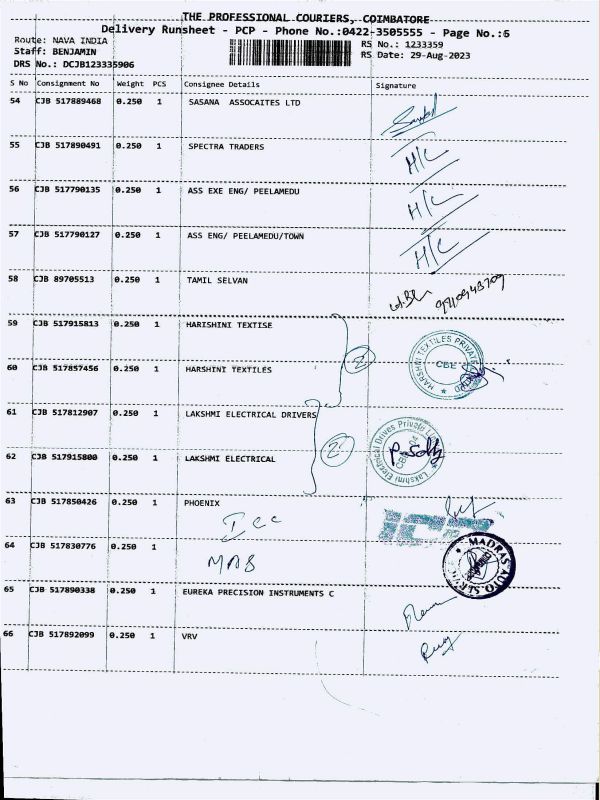 THE PROFESSIONAL COURIERS, COIMBATORE
Delivery Runsheet - PCP - Phone No.:0422-3505555 - Page No.:6
Route: NAVA INDIA
RS No.: 1233359
Staff: BENJAMIN
RS Date: 29-Aug-2023
DRS No.: DCJB123335906
S No Consignment No Weight PCS Consignee Details Signature
54 CJB 517889468 0.250 1 SASANA ASSOCAITES LTD
55 CJB 517890491 0.250 1 SPECTRA TRADERS H/C
56 CJB 517790135 0.250 1 ASS EXE ENG/ PEELAMEDU H/C
57 CJB 517790127 0.250 1 ASS ENG/ PEELAMEDU/TOWN H/C
58 CJB 89705513 0.250 1 TAMIL SELVAN
59 CJB 517915813 0.250 1 HARISHINI TEXTISE
2
HARSHNI TEXTILES PRIVATE
CBE
60 CJB 517857456 0.250 1 HARSHINI TEXTILES
61 CJB 517812907 0.250 1 LAKSHMI ELECTRICAL DRIVERS
2
Lakshmi Electrical Drives Private
62 CJB 517915800 0.250 1 LAKSHMI ELECTRICAL
63 CJB 517850426 0.250 1 PHOENIX
Icc
64 CJB 517830776 0.250 1
MAS
MADRAS AUTO SERVICE
65 CJB 517890338 0.250 1 EUREKA PRECISION INSTRUMENTS C
66 CJB 517892099 0.250 1 VRV